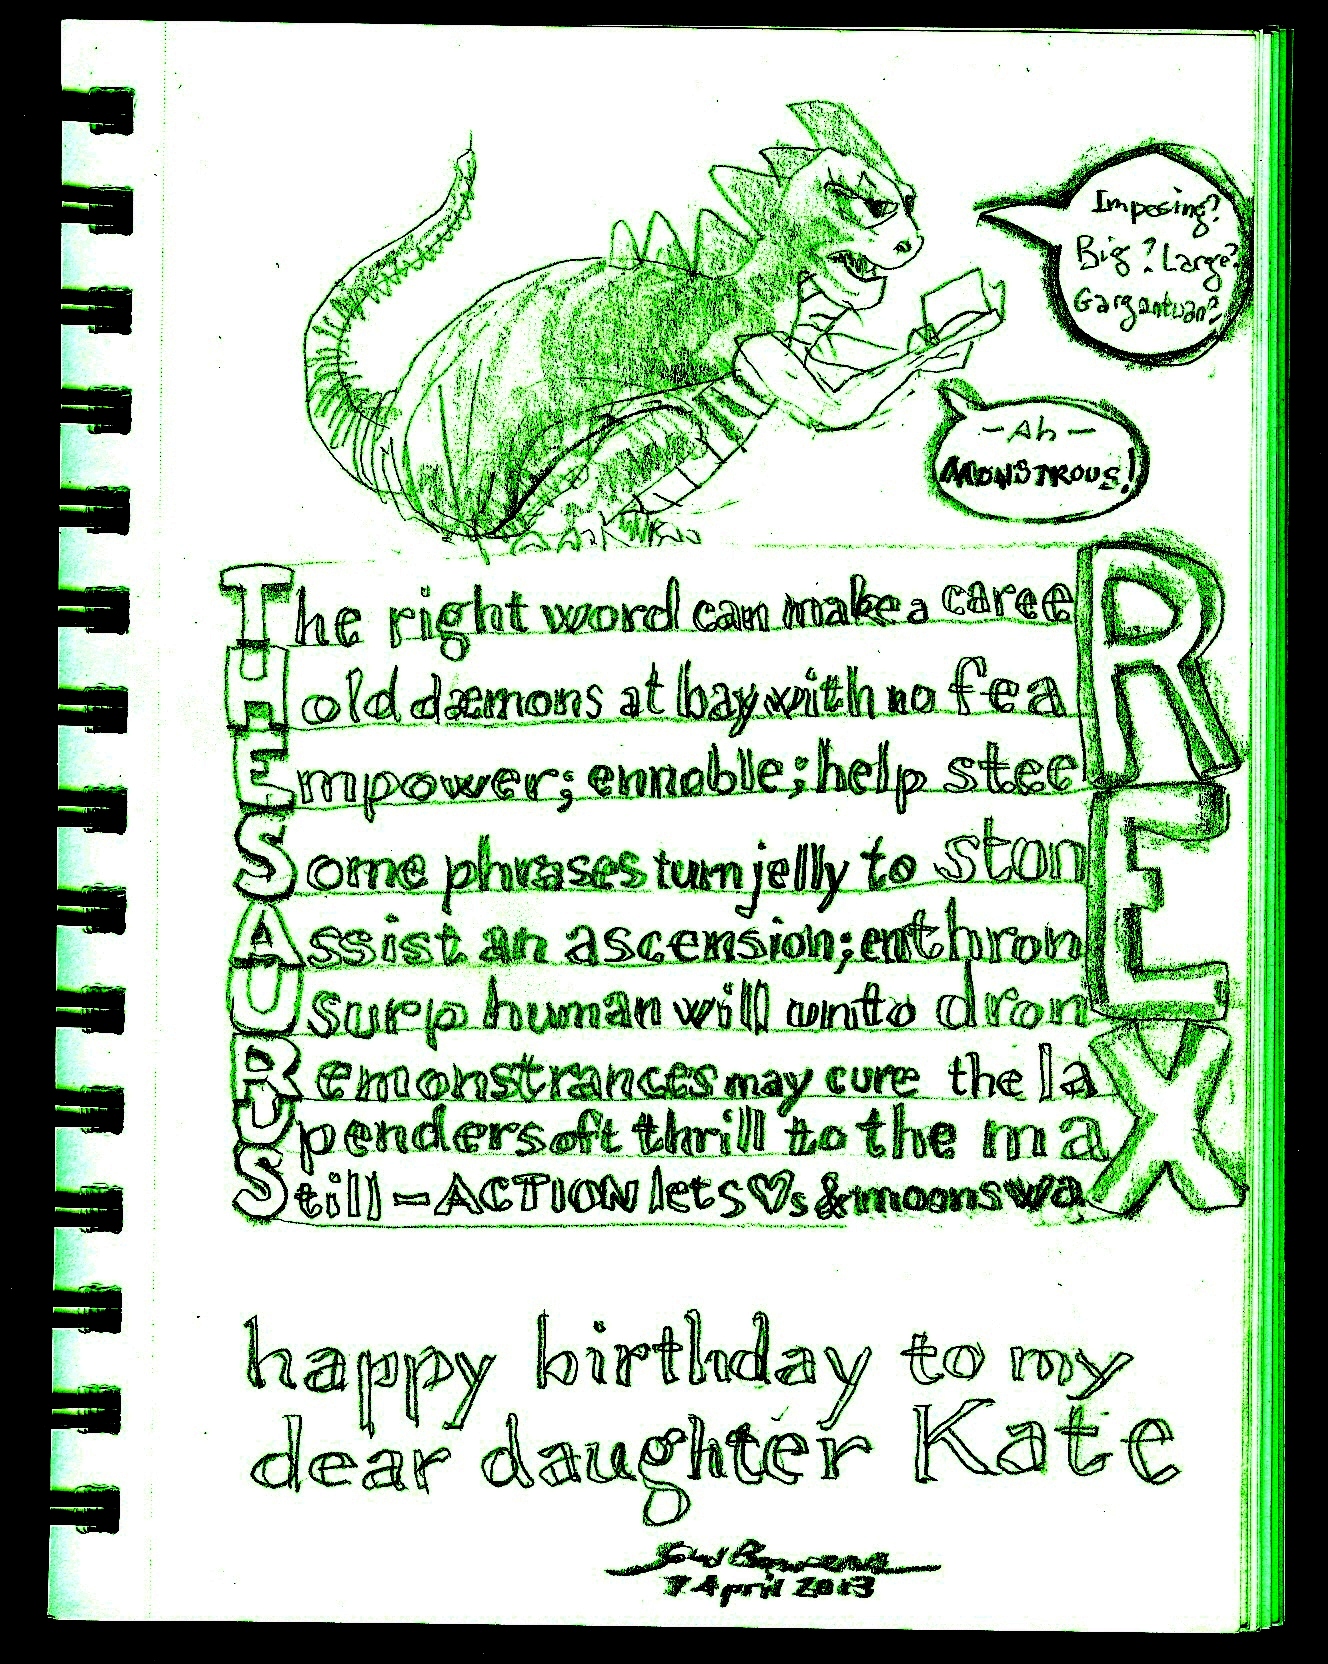 Imposing?
Big? Large?
Gargantuan?
-Ah-
MONSTROUS!
The right word can make a caree
Hold dæmons at bay with no fea
Empower; ennoble; help stee
Some phrases turn jelly to ston
Assist an ascension; enthron
Usurp human will unto dron
Remonstrances may cure the la
Upenders oft thrill to the ma
Still-ACTION lets ♡s & moons wa
REX
happy birthday to my
dear daughter Kate
7 April 2013